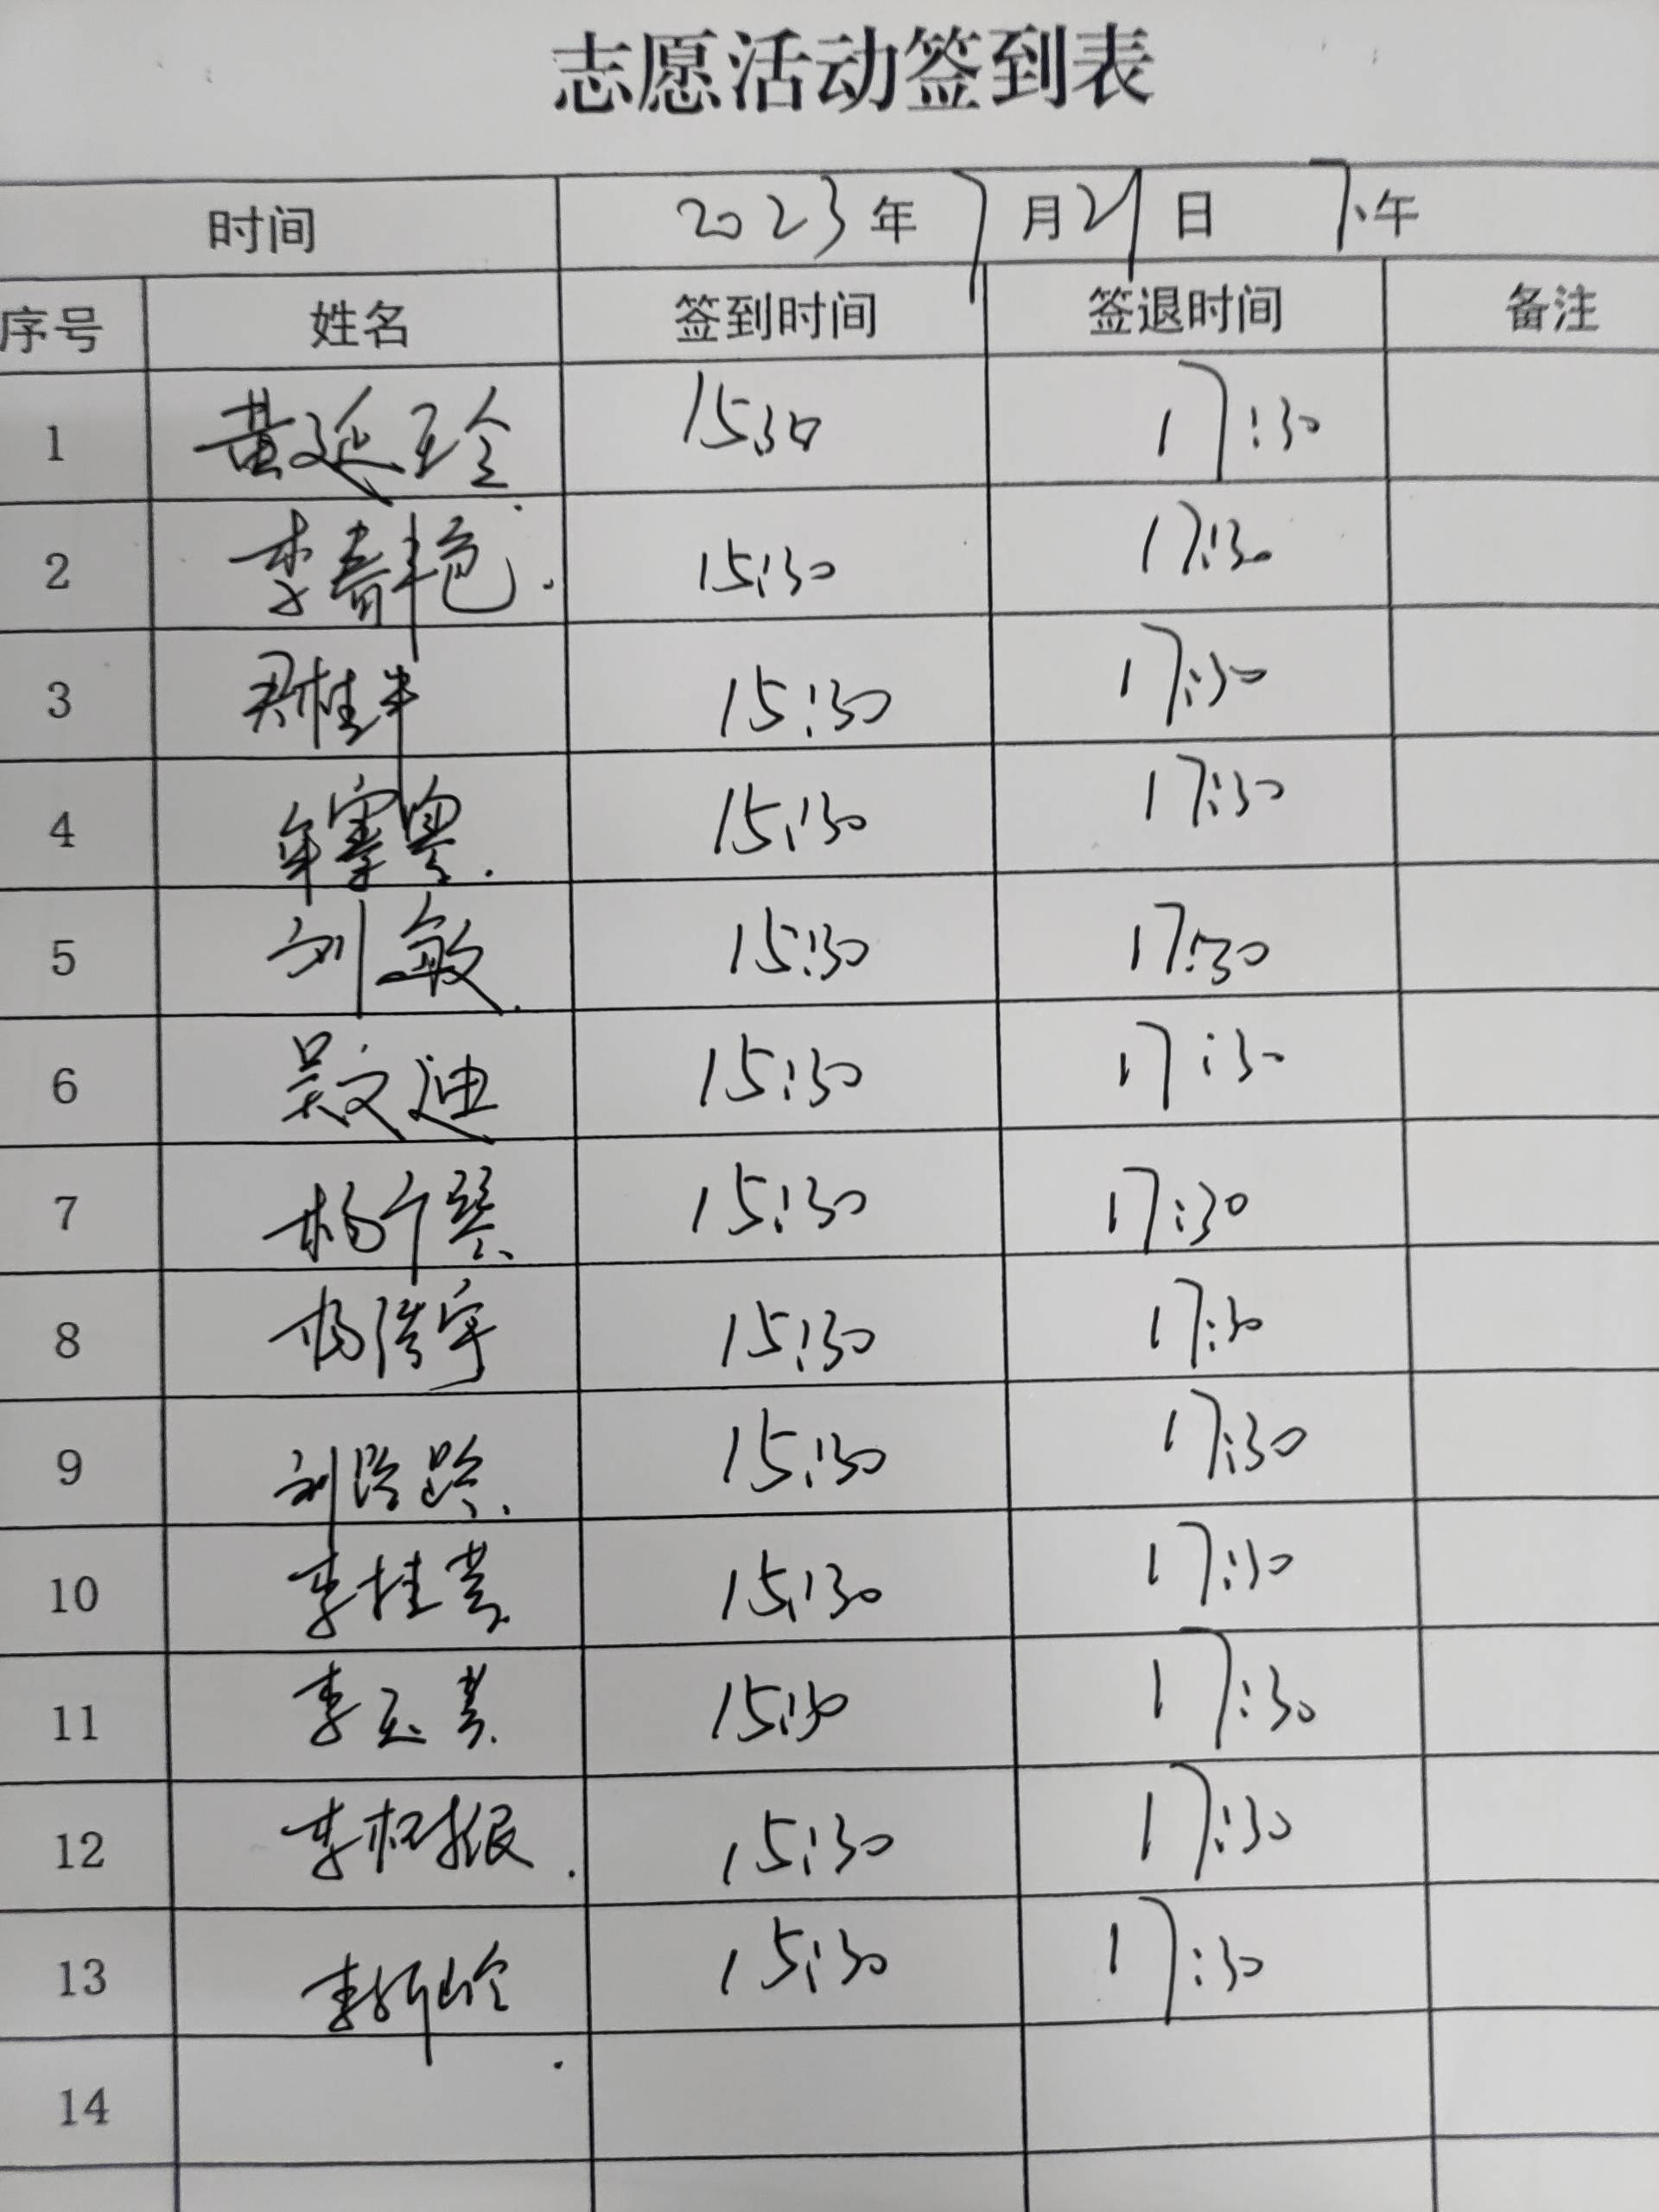 志愿活动签到表
时间 2023年7月21日 下午
序号 姓名 签到时间 签退时间 备注
1 黄延玲 15:30 17:30
2 李春艳 15:30 17:30
3 桂 15:30 17:30
4 15:30 17:30
5 刘敏 15:30 17:30
6 吴文迪 15:30 17:30
7 杨 15:30 17:30
8 杨浩宇 15:30 17:30
9 刘路路 15:30 17:30
10 李桂 15:30 17:30
11 李玉 15:30 17:30
12 李 15:30 17:30
13 李 15:30 17:30
14